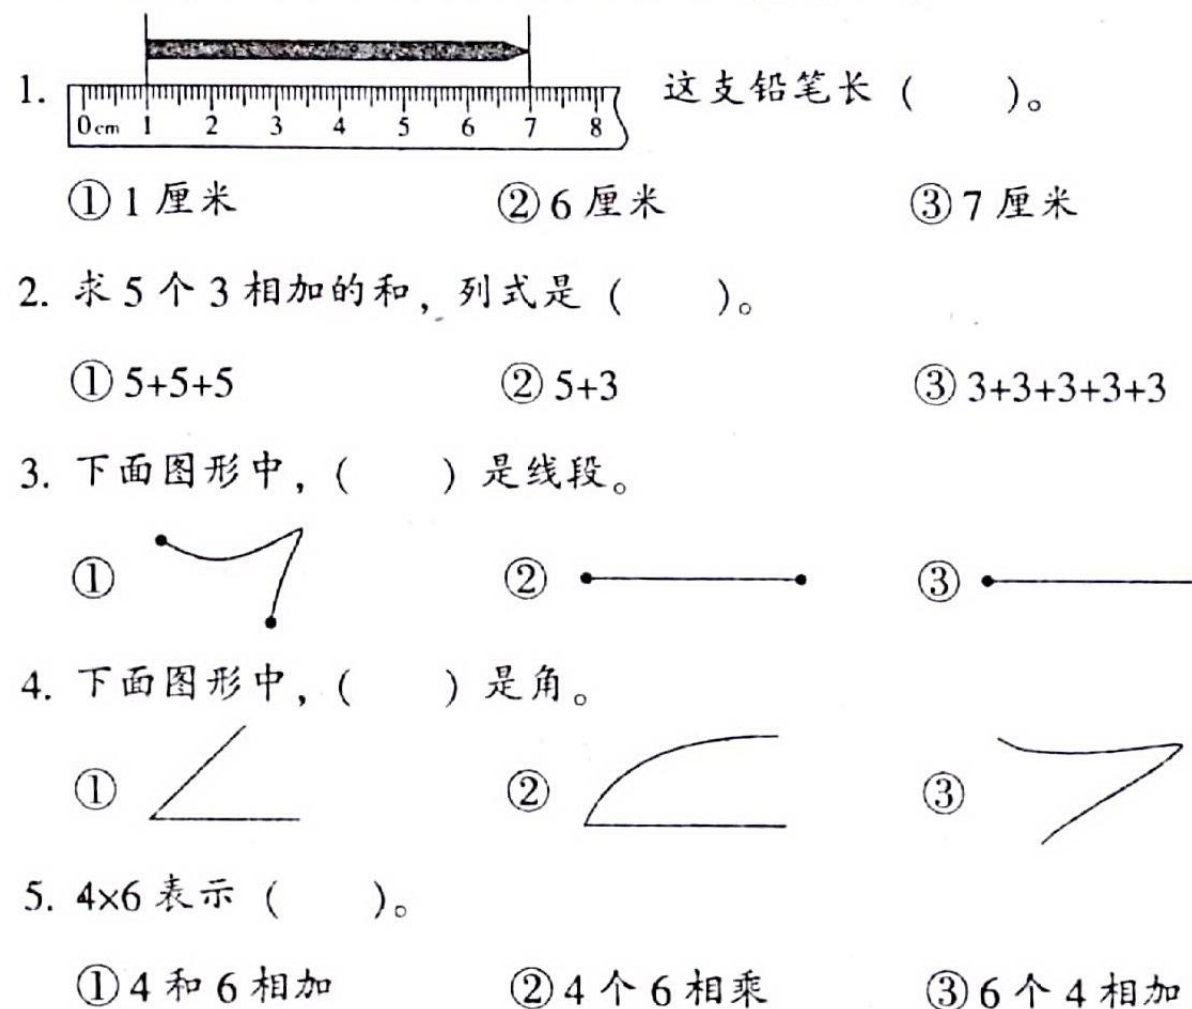 1. 0cm 1 2 3 4 5 6 7 8 这支铅笔长（　　）。
①1厘米 ②6厘米 ③7厘米
2. 求5个3相加的和，列式是（　　）。
①5+5+5 ②5+3 ③3+3+3+3+3
3. 下面图形中，（　　）是线段。
① ② ③
4. 下面图形中，（　　）是角。
① ② ③
5. 4×6表示（　　）。
①4和6相加 ②4个6相乘 ③6个4相加